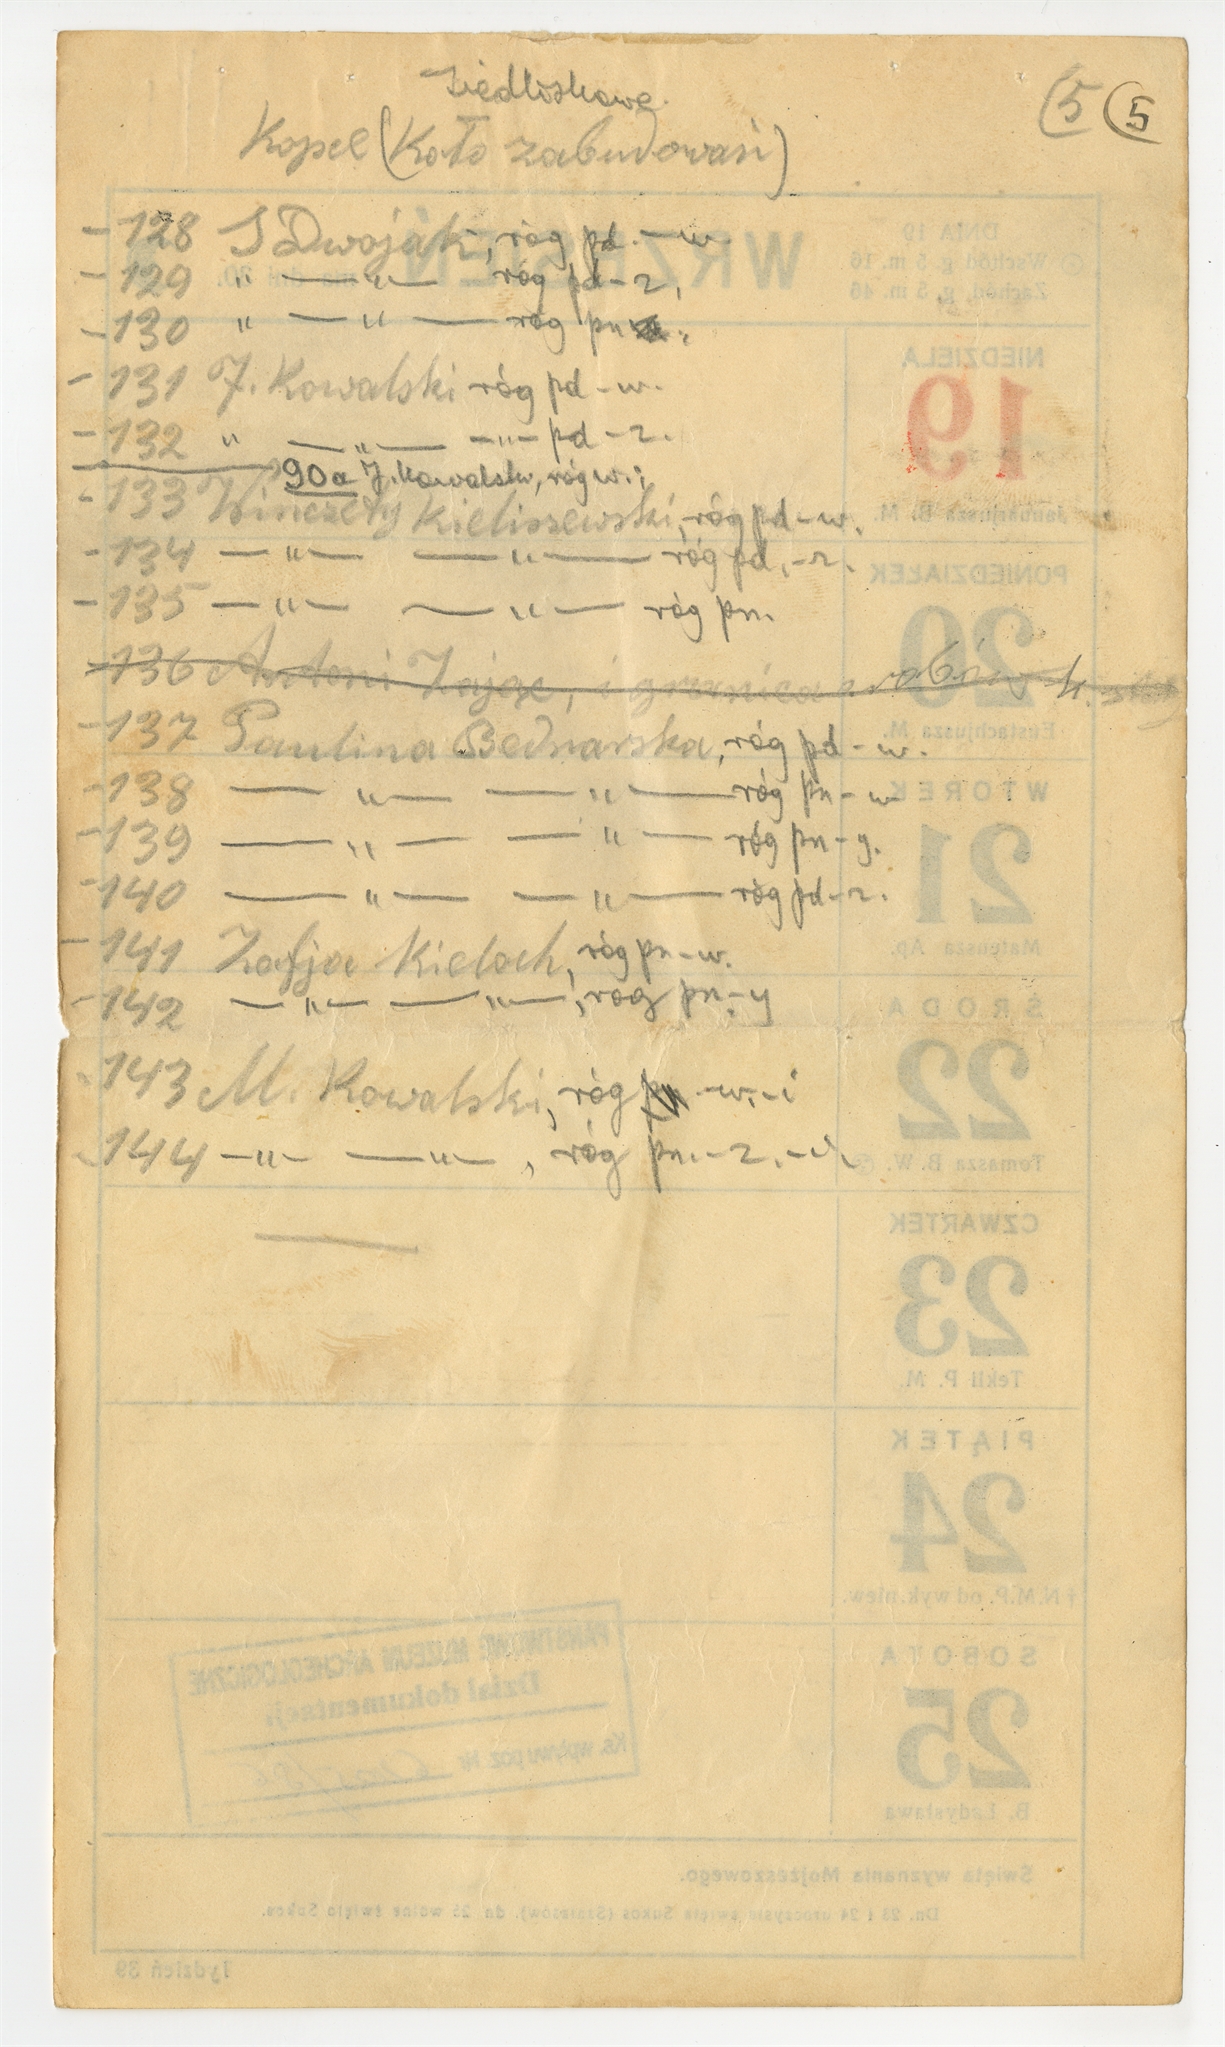 (5 (5
Kopce (Koło zabudowań)
- 128 S Dwojak, róg pd.-w.
- 129 " — " — róg pd-z.
- 130 " — " — róg pn.
- 131 J. Kowalski róg pd-w.
- 132 " — " — -"- pd-z.
90a J. Kowalski, róg w.;
- 133 Wincenty Kieliszewski, róg pd-w.
- 134 — " — — " — róg pd.-z.
- 135 — " — — " — róg pn.
136 Antoni Zając, i granica
- 137 Paulina Bednarska, róg pd-w.
- 138 — " — — " — róg pn-w
- 139 — " — — " — róg pn-z.
- 140 — " — — " — róg pd-z.
- 141 Zofja Kieloch, róg pn-w.
- 142 — " — — " —, róg pn.-z
- 143 M. Kowalski, róg -w.-i
- 144 -"- — " —, róg pn.-z.-i.
WRZESIEŃ
DNIA 19
Wschód g 5 m. 16
Zachód, g, 5 m. 46
NIEDZIELA
19
Januarjusza B. M.
PONIEDZIAŁEK
20
Eustachjusza M.
WTOREK
21
Mateusza Ap.
ŚRODA
22
Tomasza B. W.
CZWARTEK
23
Tekli P. M.
PIĄTEK
24
† N.M.P. od wyk. niew.
SOBOTA
25
B. Ładysława
PAŃSTWOWE MUZEUM ARCHEOLOGICZNE
Dział dokumentacji
Ks. wpływu poz. Nr
Święta wyznania Mojżeszowego.
Dn. 23 i 24 uroczyste święta Sukos (Szałasów), dn 25 wolne święto Sukos.
Tydzień 39